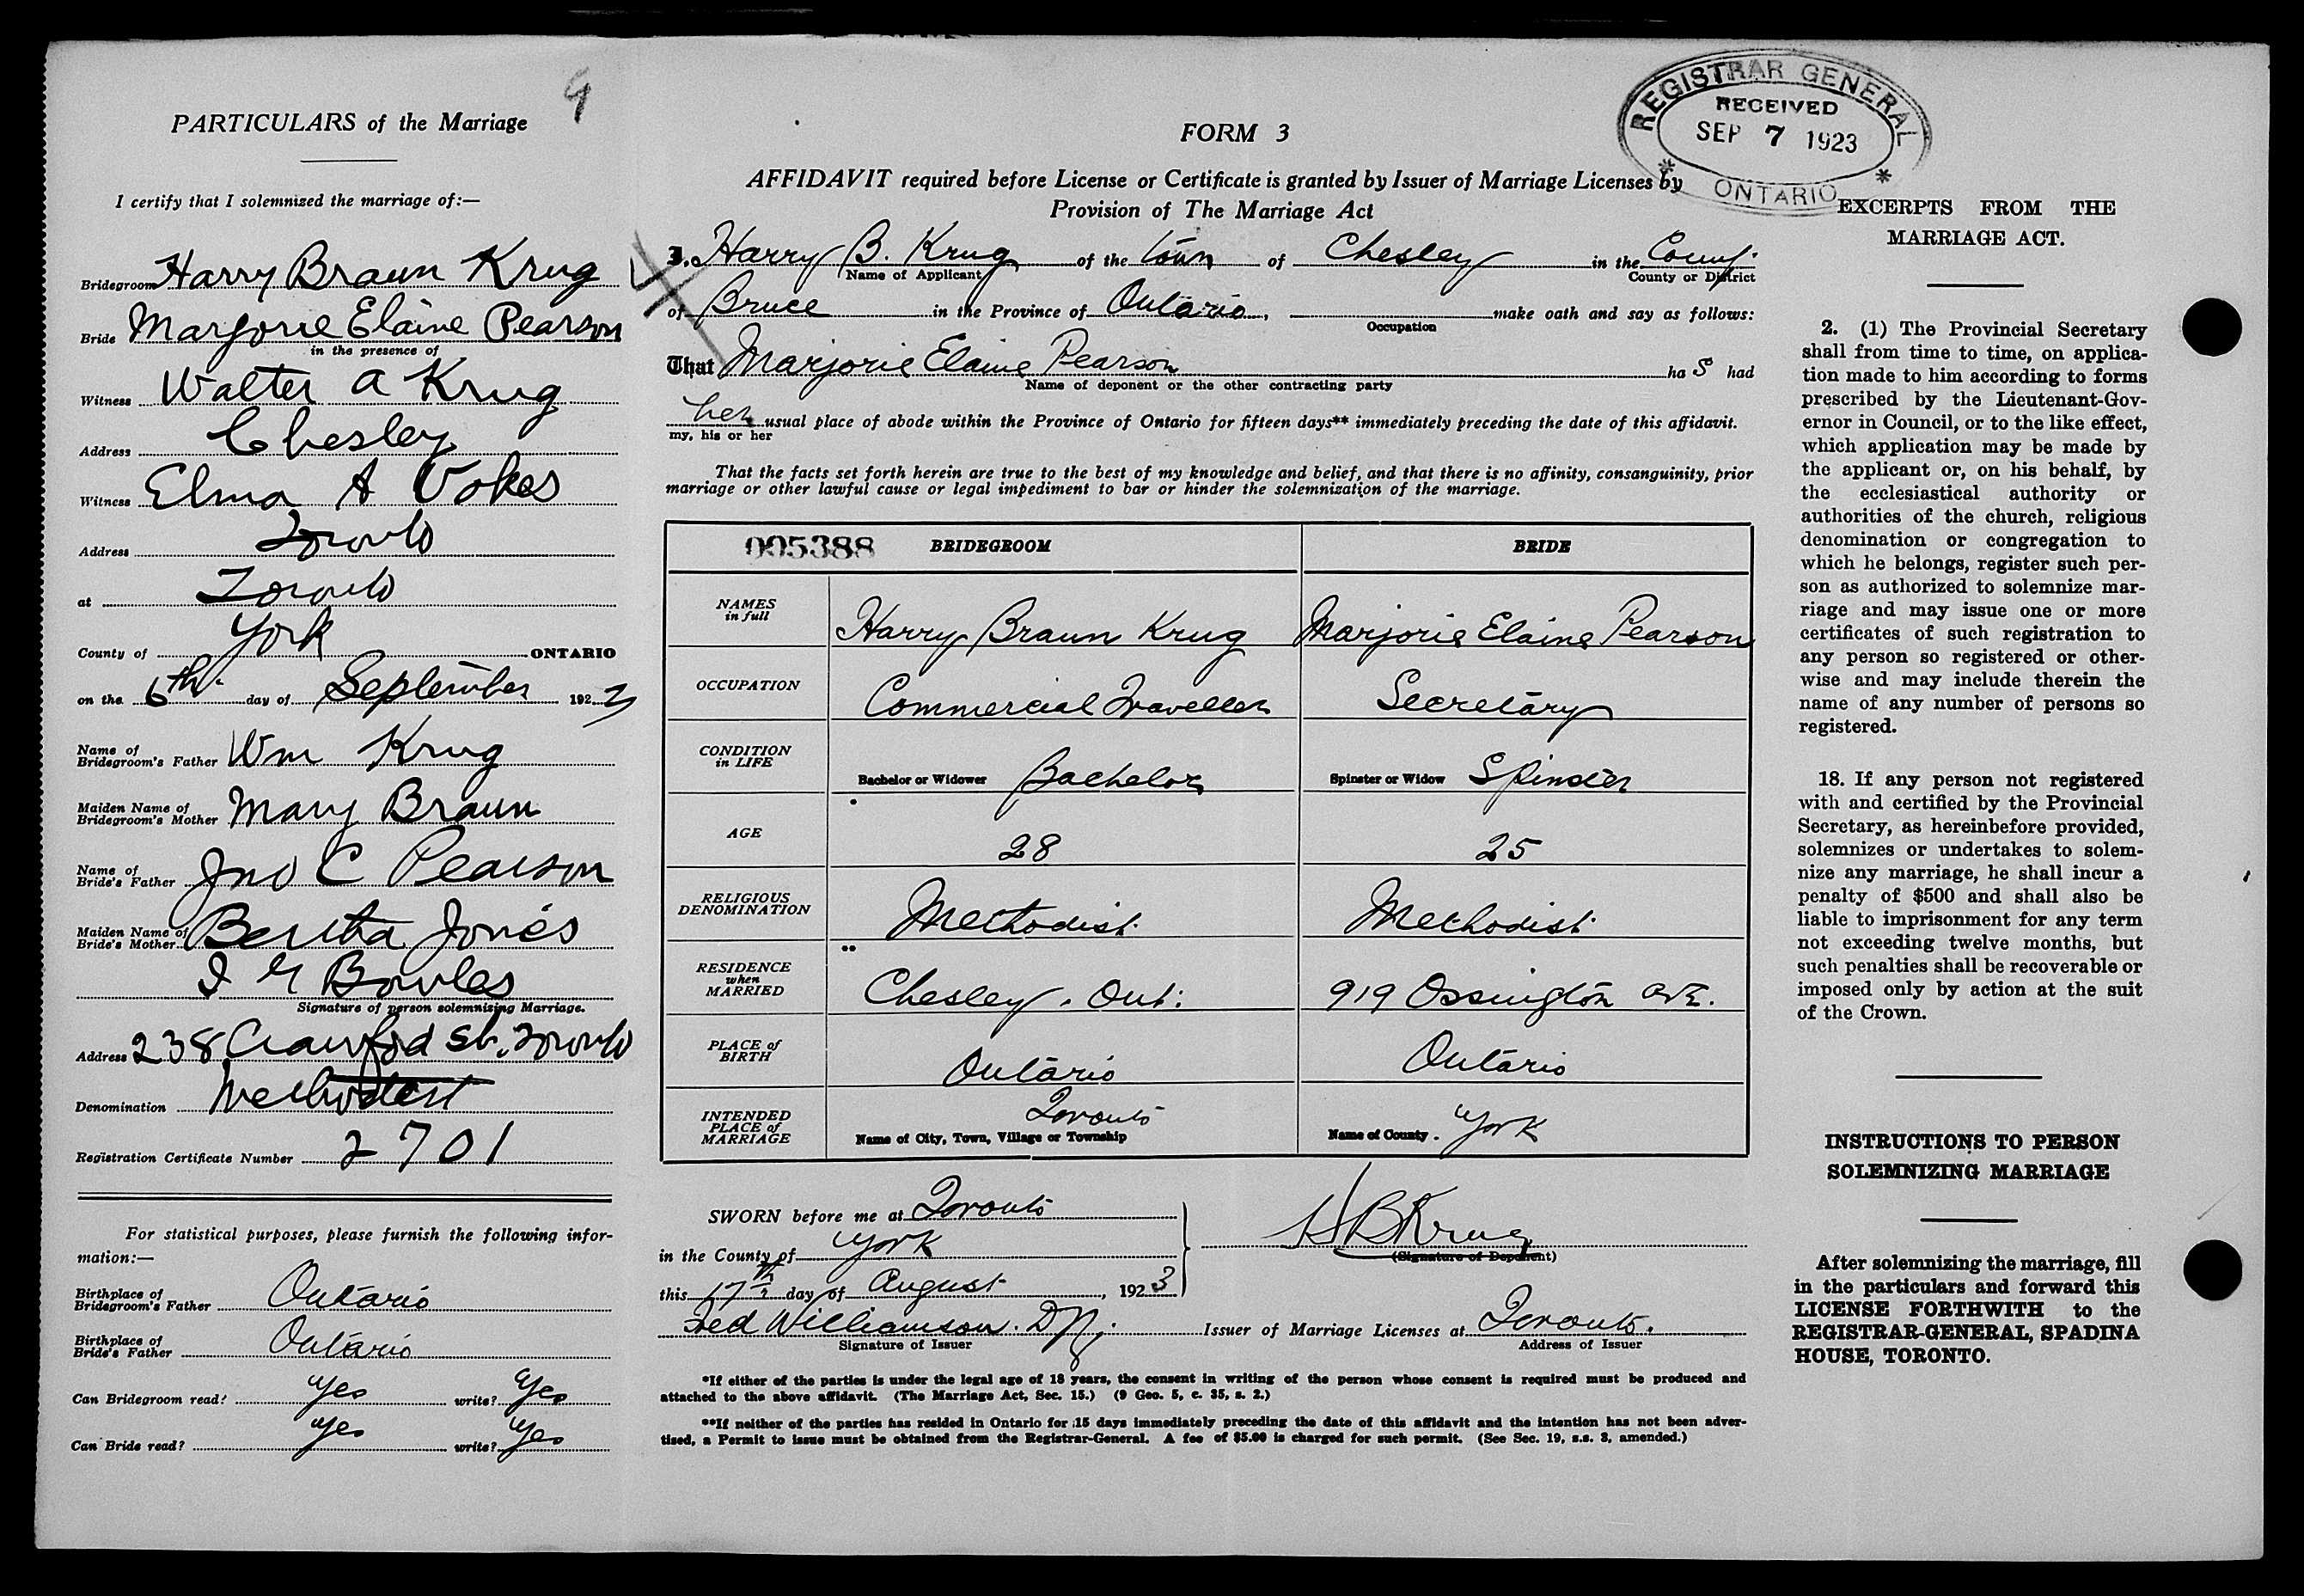 PARTICULARS of the Marriage
I certify that I solemnized the marriage of:—
Bridegroom Harry Braun Krug
Bride Marjorie Elaine Pearson
in the presence of
Witness Walter A Krug
Address Chesley
Witness Elma A Vokes
Address Toronto
at Toronto
County of York ONTARIO
on the 6th day of September 1923
Name of
Bridegroom's Father Wm Krug
Maiden Name of
Bridegroom's Mother Mary Braun
Name of
Bride's Father Jno C Pearson
Maiden Name of
Bride's Mother Bertha Jones
Bowles
Signature of person solemnizing Marriage.
Address 238 Crawford St. Toronto
Denomination Methodist
Registration Certificate Number 2701
For statistical purposes, please furnish the following infor-
mation:—
Birthplace of
Bridegroom's Father Ontario
Birthplace of
Bride's Father Ontario
Can Bridegroom read? Yes write? Yes
Can Bride read? Yes write? Yes
REGISTRAR GENERAL
RECEIVED
SEP 7 1923
ONTARIO
FORM 3
AFFIDAVIT required before License or Certificate is granted by Issuer of Marriage Licenses by
Provision of The Marriage Act
I. Harry B. Krug of the town of Chesley in the County
Name of Applicant County or District
of Bruce in the Province of Ontario, make oath and say as follows:
Occupation
That Marjorie Elaine Pearson ha s had
Name of deponent or the other contracting party
her usual place of abode within the Province of Ontario for fifteen days** immediately preceding the date of this affidavit.
my, his or her
That the facts set forth herein are true to the best of my knowledge and belief, and that there is no affinity, consanguinity, prior
marriage or other lawful cause or legal impediment to bar or hinder the solemnization of the marriage.
005388 BRIDEGROOM BRIDE
NAMES
in full Harry Braun Krug Marjorie Elaine Pearson
OCCUPATION Commercial Traveller Secretary
CONDITION
in LIFE Bachelor or Widower Bachelor Spinster or Widow Spinster
AGE 28 25
RELIGIOUS
DENOMINATION Methodist Methodist
RESIDENCE
when
MARRIED Chesley. Ont. 919 Ossington Ave.
PLACE of
BIRTH Ontario Ontario
INTENDED
PLACE of
MARRIAGE Toronto York
Name of City, Town, Village or Township Name of County.
SWORN before me at Toronto
in the County of York
H B Krug
(Signature of Deponent)
this 17th day of August, 1923
Fred Williamson. Issuer of Marriage Licenses at Toronto.
Signature of Issuer Address of Issuer
*If either of the parties is under the legal age of 18 years, the consent in writing of the person whose consent is required must be produced and
attached to the above affidavit. (The Marriage Act, Sec. 15.) (9 Geo. 5, c. 35, s. 2.)
**If neither of the parties has resided in Ontario for 15 days immediately preceding the date of this affidavit and the intention has not been adver-
tised, a Permit to issue must be obtained from the Registrar-General. A fee of $5.00 is charged for such permit. (See Sec. 19, s.s. 3, amended.)
EXCERPTS FROM THE
MARRIAGE ACT.
2. (1) The Provincial Secretary
shall from time to time, on applica-
tion made to him according to forms
prescribed by the Lieutenant-Gov-
ernor in Council, or to the like effect,
which application may be made by
the applicant or, on his behalf, by
the ecclesiastical authority or
authorities of the church, religious
denomination or congregation to
which he belongs, register such per-
son as authorized to solemnize mar-
riage and may issue one or more
certificates of such registration to
any person so registered or other-
wise and may include therein the
name of any number of persons so
registered.
18. If any person not registered
with and certified by the Provincial
Secretary, as hereinbefore provided,
solemnizes or undertakes to solem-
nize any marriage, he shall incur a
penalty of $500 and shall also be
liable to imprisonment for any term
not exceeding twelve months, but
such penalties shall be recoverable or
imposed only by action at the suit
of the Crown.
INSTRUCTIONS TO PERSON
SOLEMNIZING MARRIAGE
After solemnizing the marriage, fill
in the particulars and forward this
LICENSE FORTHWITH to the
REGISTRAR-GENERAL, SPADINA
HOUSE, TORONTO.